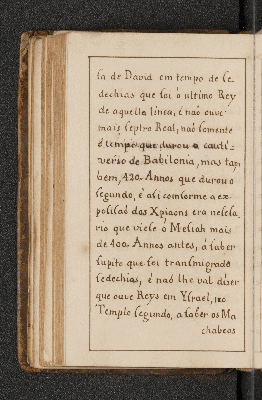 sa de David em tempo de se-
dechias que foi ó ultimo Rey
de aquella linea, é naó ouve
mais septro Real, naó somente
é tempo que durou o cauti-
verio de Babilonia, mas tam
bem, 420 Annos que durou o
segundo, é asi comforme a ex-
posisaó dos Xpiaons era nesesa-
rio que viese ó Mesiah mais
de 400 Annos antes, á saber
supito que foi transmigrado
sedechias, é naó lhe val diser
que ouve Reys em Ysrael, no
Templo segundo, a saber os Ma
chabeos